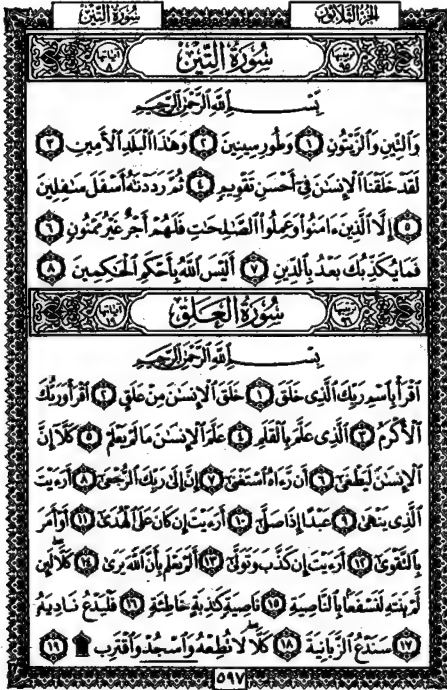 الجزء الثلاثون سورة التين
ترتيبها ٩٥ سورة التين آياتها ٨
بِسْمِ اللَّهِ الرَّحْمَٰنِ الرَّحِيمِ
وَالتِّينِ وَالزَّيْتُونِ ١ وَطُورِ سِينِينَ ٢ وَهَٰذَا الْبَلَدِ الْأَمِينِ ٣
لَقَدْ خَلَقْنَا الْإِنسَٰنَ فِي أَحْسَنِ تَقْوِيمٍ ٤ ثُمَّ رَدَدْنَٰهُ أَسْفَلَ سَٰفِلِينَ
٥ إِلَّا الَّذِينَ ءَامَنُوا وَعَمِلُوا الصَّٰلِحَٰتِ فَلَهُمْ أَجْرٌ غَيْرُ مَمْنُونٍ ٦
فَمَا يُكَذِّبُكَ بَعْدُ بِالدِّينِ ٧ أَلَيْسَ اللَّهُ بِأَحْكَمِ الْحَٰكِمِينَ ٨
ترتيبها ٩٦ سورة العلق آياتها ١٩
بِسْمِ اللَّهِ الرَّحْمَٰنِ الرَّحِيمِ
ٱقْرَأْ بِٱسْمِ رَبِّكَ الَّذِي خَلَقَ ١ خَلَقَ الْإِنسَٰنَ مِنْ عَلَقٍ ٢ ٱقْرَأْ وَرَبُّكَ
الْأَكْرَمُ ٣ الَّذِي عَلَّمَ بِالْقَلَمِ ٤ عَلَّمَ الْإِنسَٰنَ مَا لَمْ يَعْلَمْ ٥ كَلَّا إِنَّ
الْإِنسَٰنَ لَيَطْغَىٰ ٦ أَن رَّءَاهُ ٱسْتَغْنَىٰ ٧ إِنَّ إِلَىٰ رَبِّكَ الرُّجْعَىٰ ٨ أَرَءَيْتَ
الَّذِي يَنْهَىٰ ٩ عَبْدًا إِذَا صَلَّىٰ ١٠ أَرَءَيْتَ إِن كَانَ عَلَى الْهُدَىٰ ١١ أَوْ أَمَرَ
بِالتَّقْوَىٰ ١٢ أَرَءَيْتَ إِن كَذَّبَ وَتَوَلَّىٰ ١٣ أَلَمْ يَعْلَم بِأَنَّ اللَّهَ يَرَىٰ ١٤ كَلَّا لَئِن
لَّمْ يَنتَهِ لَنَسْفَعًا بِالنَّاصِيَةِ ١٥ نَاصِيَةٍ كَٰذِبَةٍ خَاطِئَةٍ ١٦ فَلْيَدْعُ نَادِيَهُ
١٧ سَنَدْعُ الزَّبَانِيَةَ ١٨ كَلَّا لَا تُطِعْهُ وَٱسْجُدْ وَٱقْتَرِب ۩ ١٩
٥٩٧